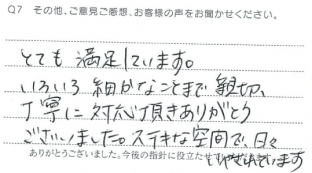 Q7 その他、ご意見ご感想、お客様の声をお聞かせください。
とても満足しています。
いろいろ細かなことまで親切、
丁寧に対応頂きありがとう
ございました。ステキな空間で、日々
いやされています
ありがとうございました。今後の指針に役立たせて